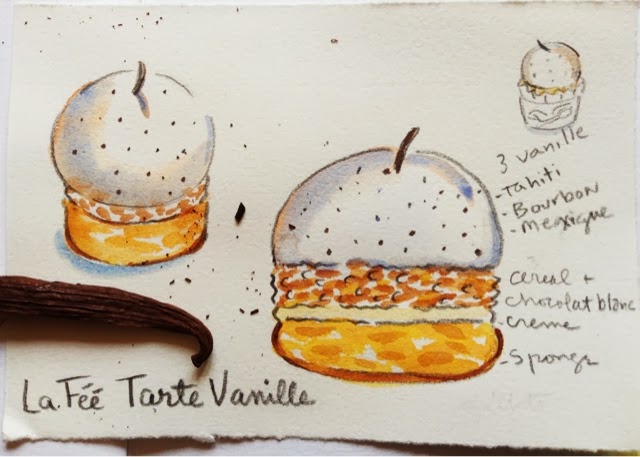 3 vanille
- Tahiti
- Bourbon
- Mexique
cereal +
chocolat blanc
- creme
- Sponge
La Féé Tarte Vanille